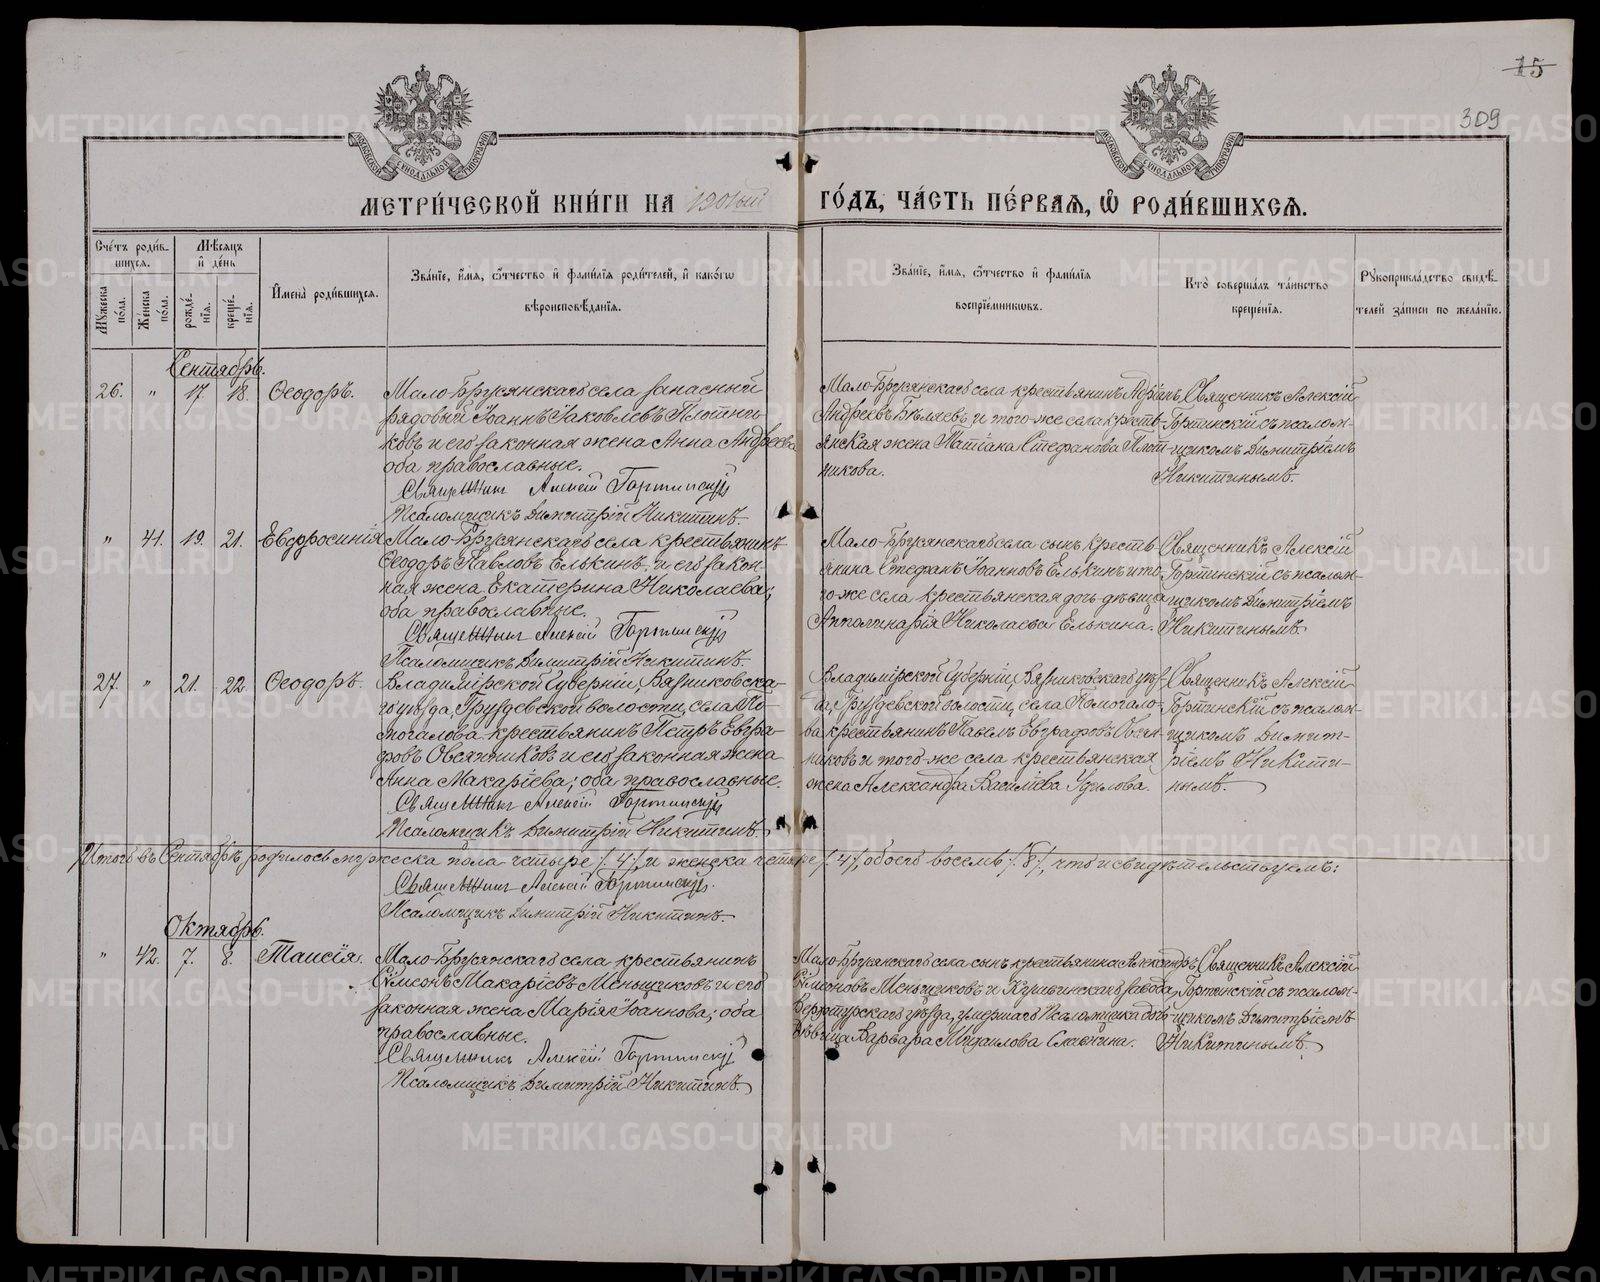 15
309
МЕТРИ́ЧЕСКОЙ КНИ́ГИ НА 1901ый ГО́ДЪ, ЧА́СТЬ ПЕ́РВАѦ, Ѽ РОДИ́ВШИХСѦ.
Сче́тъ роди́в-
шихся.
Мѣ́сяцъ
и҆ де́нь
Мꙋ́жеска по́ла.
Же́нска по́ла.
рожде́-
нїя.
креще́-
нїя.
И҆мена̀ роди́вшихся.
Зва́нїе, и҆́мя, ѻ҆́тчество и҆ фами́лїя роди́телей, и҆ како́гѡ
вѣроисповѣ́данїя.
Зва́нїе, и҆́мя, ѻ҆́тчество и҆ фами́лїя
воспрїе́мникѡвъ.
Кто̀ соверша́лъ та́инство
креще́нїя.
Рꙋкоприкла́дство свидѣ́-
телей за́писи по жела́нїю.
Сентябрь.
26. " 17. 18. Ѳеодоръ.
Мало-Брусянскаго села запасный
рядовый Іоаннъ Іаковлевъ Плотни-
ковъ и его законная жена Анна Андреева
оба православные.
Священникъ Алексій Гортинскій
Псаломщикъ Димитрій Никитинъ.
Мало-Брусянскаго села крестьянинъ
Андреевъ Бѣляевъ и того-же села кресть-
янская жена Татіана Стефанова Плот-
никова.
Священникъ Алексій
Гортинскій съ псалом-
щикомъ Димитріемъ
Никитинымъ.
" 41. 19. 21. Евфросинія
Мало-Брусянскаго села крестьянинъ
Ѳеодоръ Павловъ Елькинъ и его закон-
ная жена Екатерина Николаева;
оба православные.
Священникъ Алексій Гортинскій
Псаломщикъ Димитрій Никитинъ.
Мало-Брусянскаго села сынъ кресть-
янина Стефанъ Іоанновъ Елькинъ и то-
го-же села крестьянская дочь-дѣвица
Апполинарія Николаева Елькина.
Священникъ Алексій
Гортинскій съ псалом-
щикомъ Димитріемъ
Никитинымъ.
27. " 21. 22. Ѳеодоръ.
Владимірской Губерніи, Вязниковска-
го уѣзда, Груздевской волости, села По-
могалова крестьянинъ Петръ Евгра-
фовъ Овсянниковъ и его законная жена
Анна Макаріева; оба православные.
Священникъ Алексій Гортинскій
Псаломщикъ Димитрій Никитинъ.
Владимірской Губерніи, Вязниковскаго уѣз-
да, Груздевской волости, села Помогало-
ва крестьянинъ Павелъ Евграфовъ Овсян-
никовъ и того-же села крестьянская
жена Александра Василіева Удилова.
Священникъ Алексій
Гортинскій съ псалом-
щикомъ Димит-
ріемъ Никити-
нымъ.
Итого въ Сентябрѣ родилось мужеска пола четыре /4/, и женска четыре /4/, обоего восемь /8/, что и свидѣтельствуемъ:
Священникъ Алексій Гортинскій.
Псаломщикъ Димитрій Никитинъ.
Октябрь.
" 42. 7. 8. Таисія.
Мало-Брусянскаго села крестьянинъ
Сѵмеонъ Макаріевъ Меньщиковъ и его
законная жена Марія Іоаннова; оба
православные.
Священникъ Алексій Гортинскій
Псаломщикъ Димитрій Никитинъ.
Мало-Брусянскаго села сынъ крестьянина Александръ
Сѵмеоновъ Меньщиковъ и Кушвинскаго завода,
Верхотурскаго уѣзда, умершаго Псаломщика дочь
дѣвица Варвара Михаилова Славнина.
Священникъ Алексій
Гортинскій съ псалом-
щикомъ Димитріемъ
Никитинымъ.